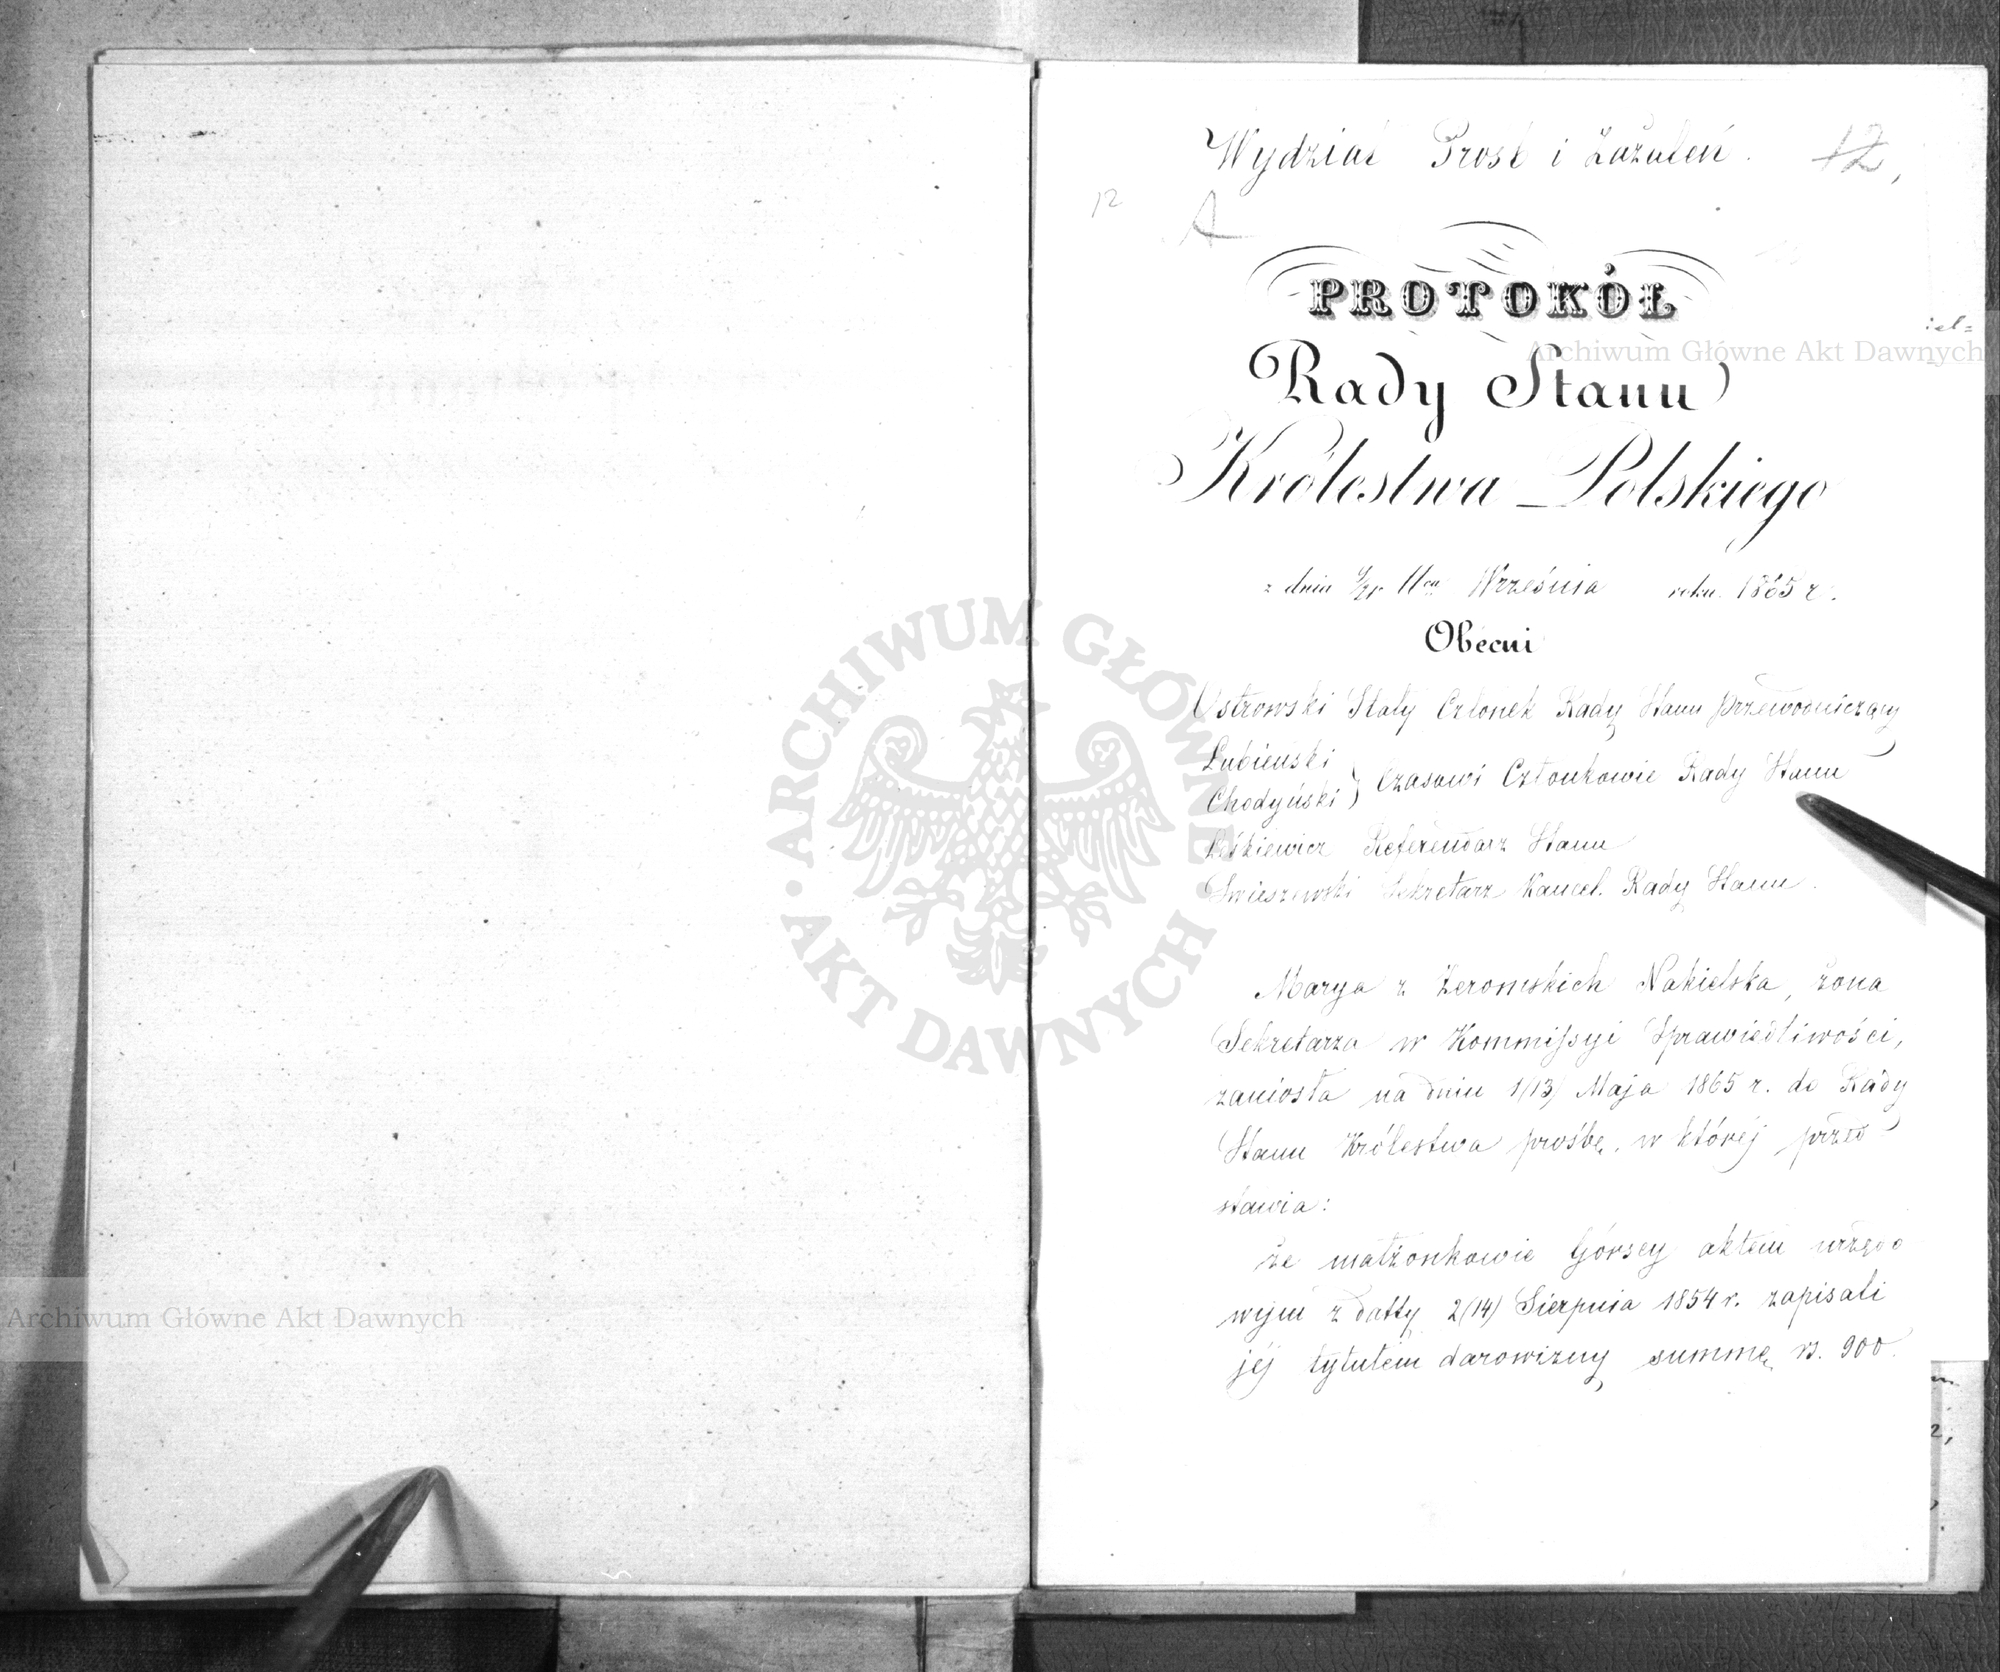 Wydział Prośb i Zażaleń.
12,
12
A
PROTOKÓŁ
Rady Stanu
Królestwa Polskiego
z dnia 11go Września roku 1865 r.
Obecni
Ostrowski Stały Członek Rady Stanu Przewodniczący
Łubieński
Chodyński } Czasowi Członkowie Rady Stanu
Leśkiewicz Referendarz Stanu
Sekretarz Kancel. Rady Stanu.
Marya z Żeromskich Nakielska, żona
Sekretarza w Kommissyi Sprawiedliwości,
zaniosła na dniu 1/13/ Maja 1865 r. do Rady
Stanu Królestwa prośbę, w której przed
stawia:
że małżonkowie Górscy aktem urzędo
wym z datty 2/14/ Sierpnia 1854 r. zapisali
jéj tytułem darowizny summę rs. 900.
Archiwum Główne Akt Dawnych
Archiwum Główne Akt Dawnych
ARCHIWUM GŁÓWNE • AKT DAWNYCH